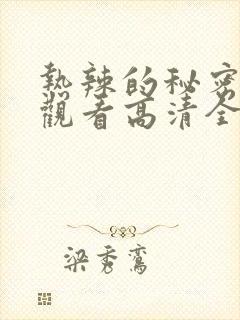 熱辣的秘密
觀看高清全
梁秀鸞